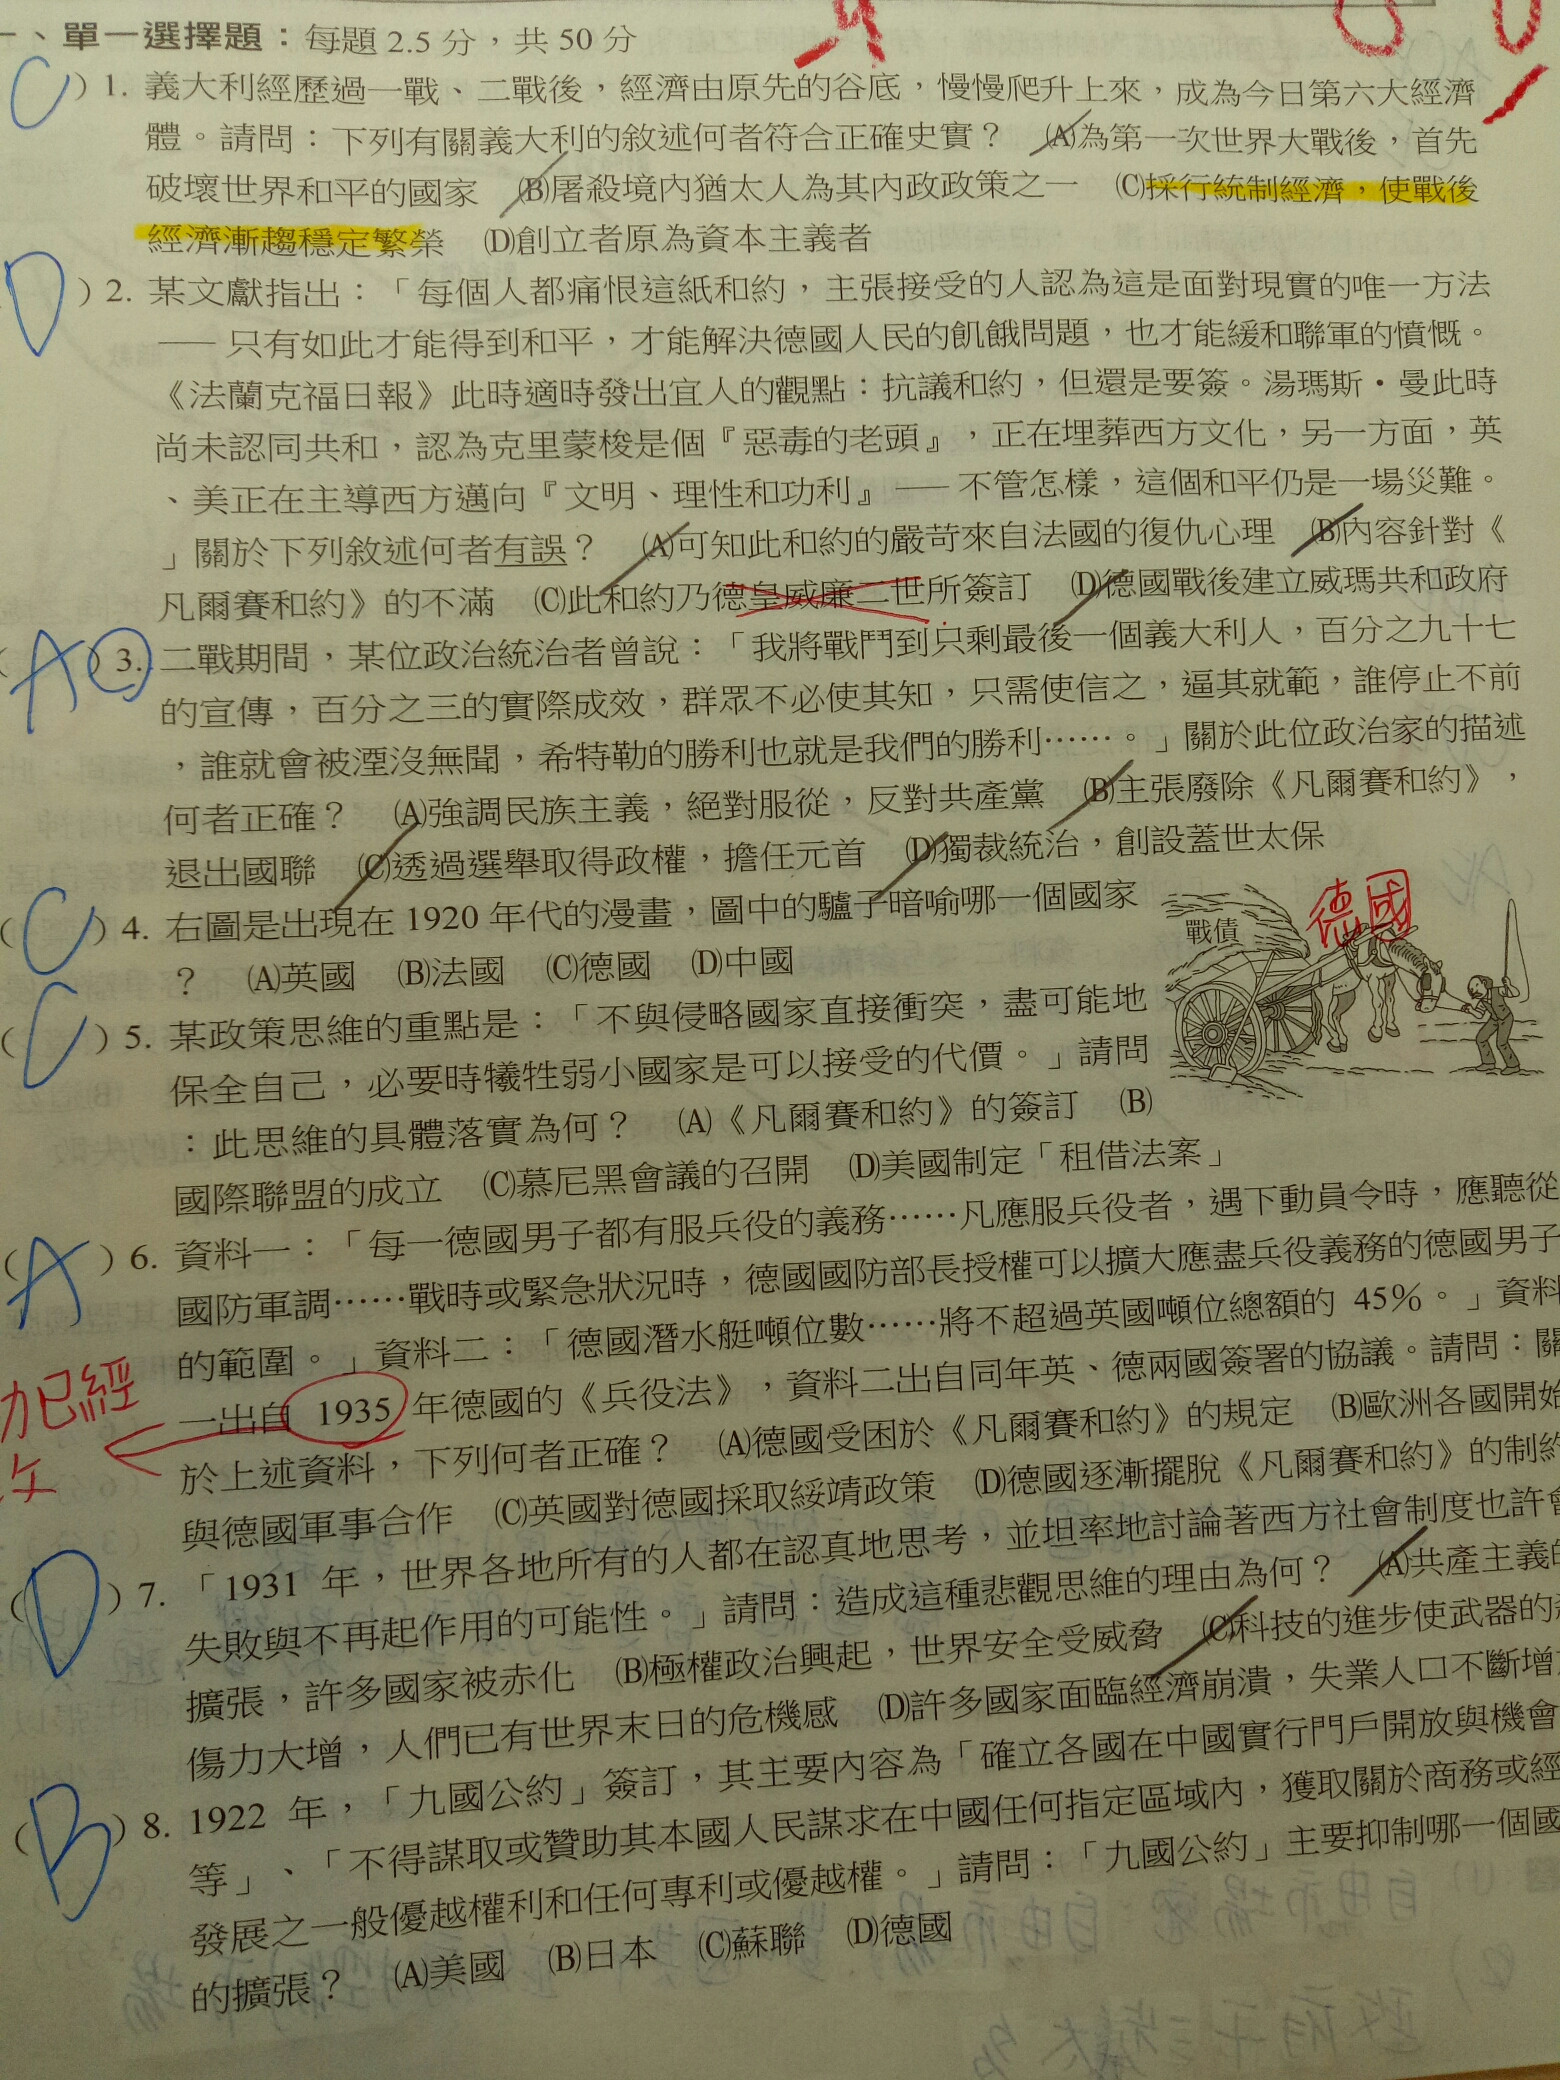 一、單一選擇題：每題 2.5 分，共 50 分
C ) 1. 義大利經歷過一戰、二戰後，經濟由原先的谷底，慢慢爬升上來，成為今日第六大經濟
體。請問：下列有關義大利的敘述何者符合正確史實？ (A)為第一次世界大戰後，首先
破壞世界和平的國家 (B)屠殺境內猶太人為其內政政策之一 (C)採行統制經濟，使戰後
經濟漸趨穩定繁榮 (D)創立者原為資本主義者
D ) 2. 某文獻指出：「每個人都痛恨這紙和約，主張接受的人認為這是面對現實的唯一方法
── 只有如此才能得到和平，才能解決德國人民的飢餓問題，也才能緩和聯軍的憤慨。
《法蘭克福日報》此時適時發出宜人的觀點：抗議和約，但還是要簽。湯瑪斯・曼此時
尚未認同共和，認為克里蒙梭是個『惡毒的老頭』，正在埋葬西方文化，另一方面，英
、美正在主導西方邁向『文明、理性和功利』── 不管怎樣，這個和平仍是一場災難。
」關於下列敘述何者有誤？ (A)可知此和約的嚴苛來自法國的復仇心理 (B)內容針對《
凡爾賽和約》的不滿 (C)此和約乃德皇威廉二世所簽訂 (D)德國戰後建立威瑪共和政府
( A ) 3. 二戰期間，某位政治統治者曾說：「我將戰鬥到只剩最後一個義大利人，百分之九十七
的宣傳，百分之三的實際成效，群眾不必使其知，只需使信之，逼其就範，誰停止不前
，誰就會被湮沒無聞，希特勒的勝利也就是我們的勝利……。」關於此位政治家的描述
何者正確？ (A)強調民族主義，絕對服從，反對共產黨 (B)主張廢除《凡爾賽和約》，
退出國聯 (C)透過選舉取得政權，擔任元首 (D)獨裁統治，創設蓋世太保
( C ) 4. 右圖是出現在 1920 年代的漫畫，圖中的驢子暗喻哪一個國家
？ (A)英國 (B)法國 (C)德國 (D)中國
戰債
德國
( C ) 5. 某政策思維的重點是：「不與侵略國家直接衝突，盡可能地
保全自己，必要時犧牲弱小國家是可以接受的代價。」請問
：此思維的具體落實為何？ (A)《凡爾賽和約》的簽訂 (B)
國際聯盟的成立 (C)慕尼黑會議的召開 (D)美國制定「租借法案」
( A ) 6. 資料一：「每一德國男子都有服兵役的義務……凡應服兵役者，遇下動員令時，應聽從
國防軍調……戰時或緊急狀況時，德國國防部長授權可以擴大應盡兵役義務的德國男子
的範圍。」資料二：「德國潛水艇噸位數……將不超過英國噸位總額的 45%。」資料
一出自 1935 年德國的《兵役法》，資料二出自同年英、德兩國簽署的協議。請問：關
於上述資料，下列何者正確？ (A)德國受困於《凡爾賽和約》的規定 (B)歐洲各國開始
與德國軍事合作 (C)英國對德國採取綏靖政策 (D)德國逐漸擺脫《凡爾賽和約》的制約
已經
( D ) 7. 「1931 年，世界各地所有的人都在認真地思考，並坦率地討論著西方社會制度也許會
失敗與不再起作用的可能性。」請問：造成這種悲觀思維的理由為何？ (A)共產主義的
擴張，許多國家被赤化 (B)極權政治興起，世界安全受威脅 (C)科技的進步使武器的
傷力大增，人們已有世界末日的危機感 (D)許多國家面臨經濟崩潰，失業人口不斷增
( B ) 8. 1922 年，「九國公約」簽訂，其主要內容為「確立各國在中國實行門戶開放與機會
等」、「不得謀取或贊助其本國人民謀求在中國任何指定區域內，獲取關於商務或經
發展之一般優越權利和任何專利或優越權。」請問：「九國公約」主要抑制哪一個國
的擴張？ (A)美國 (B)日本 (C)蘇聯 (D)德國